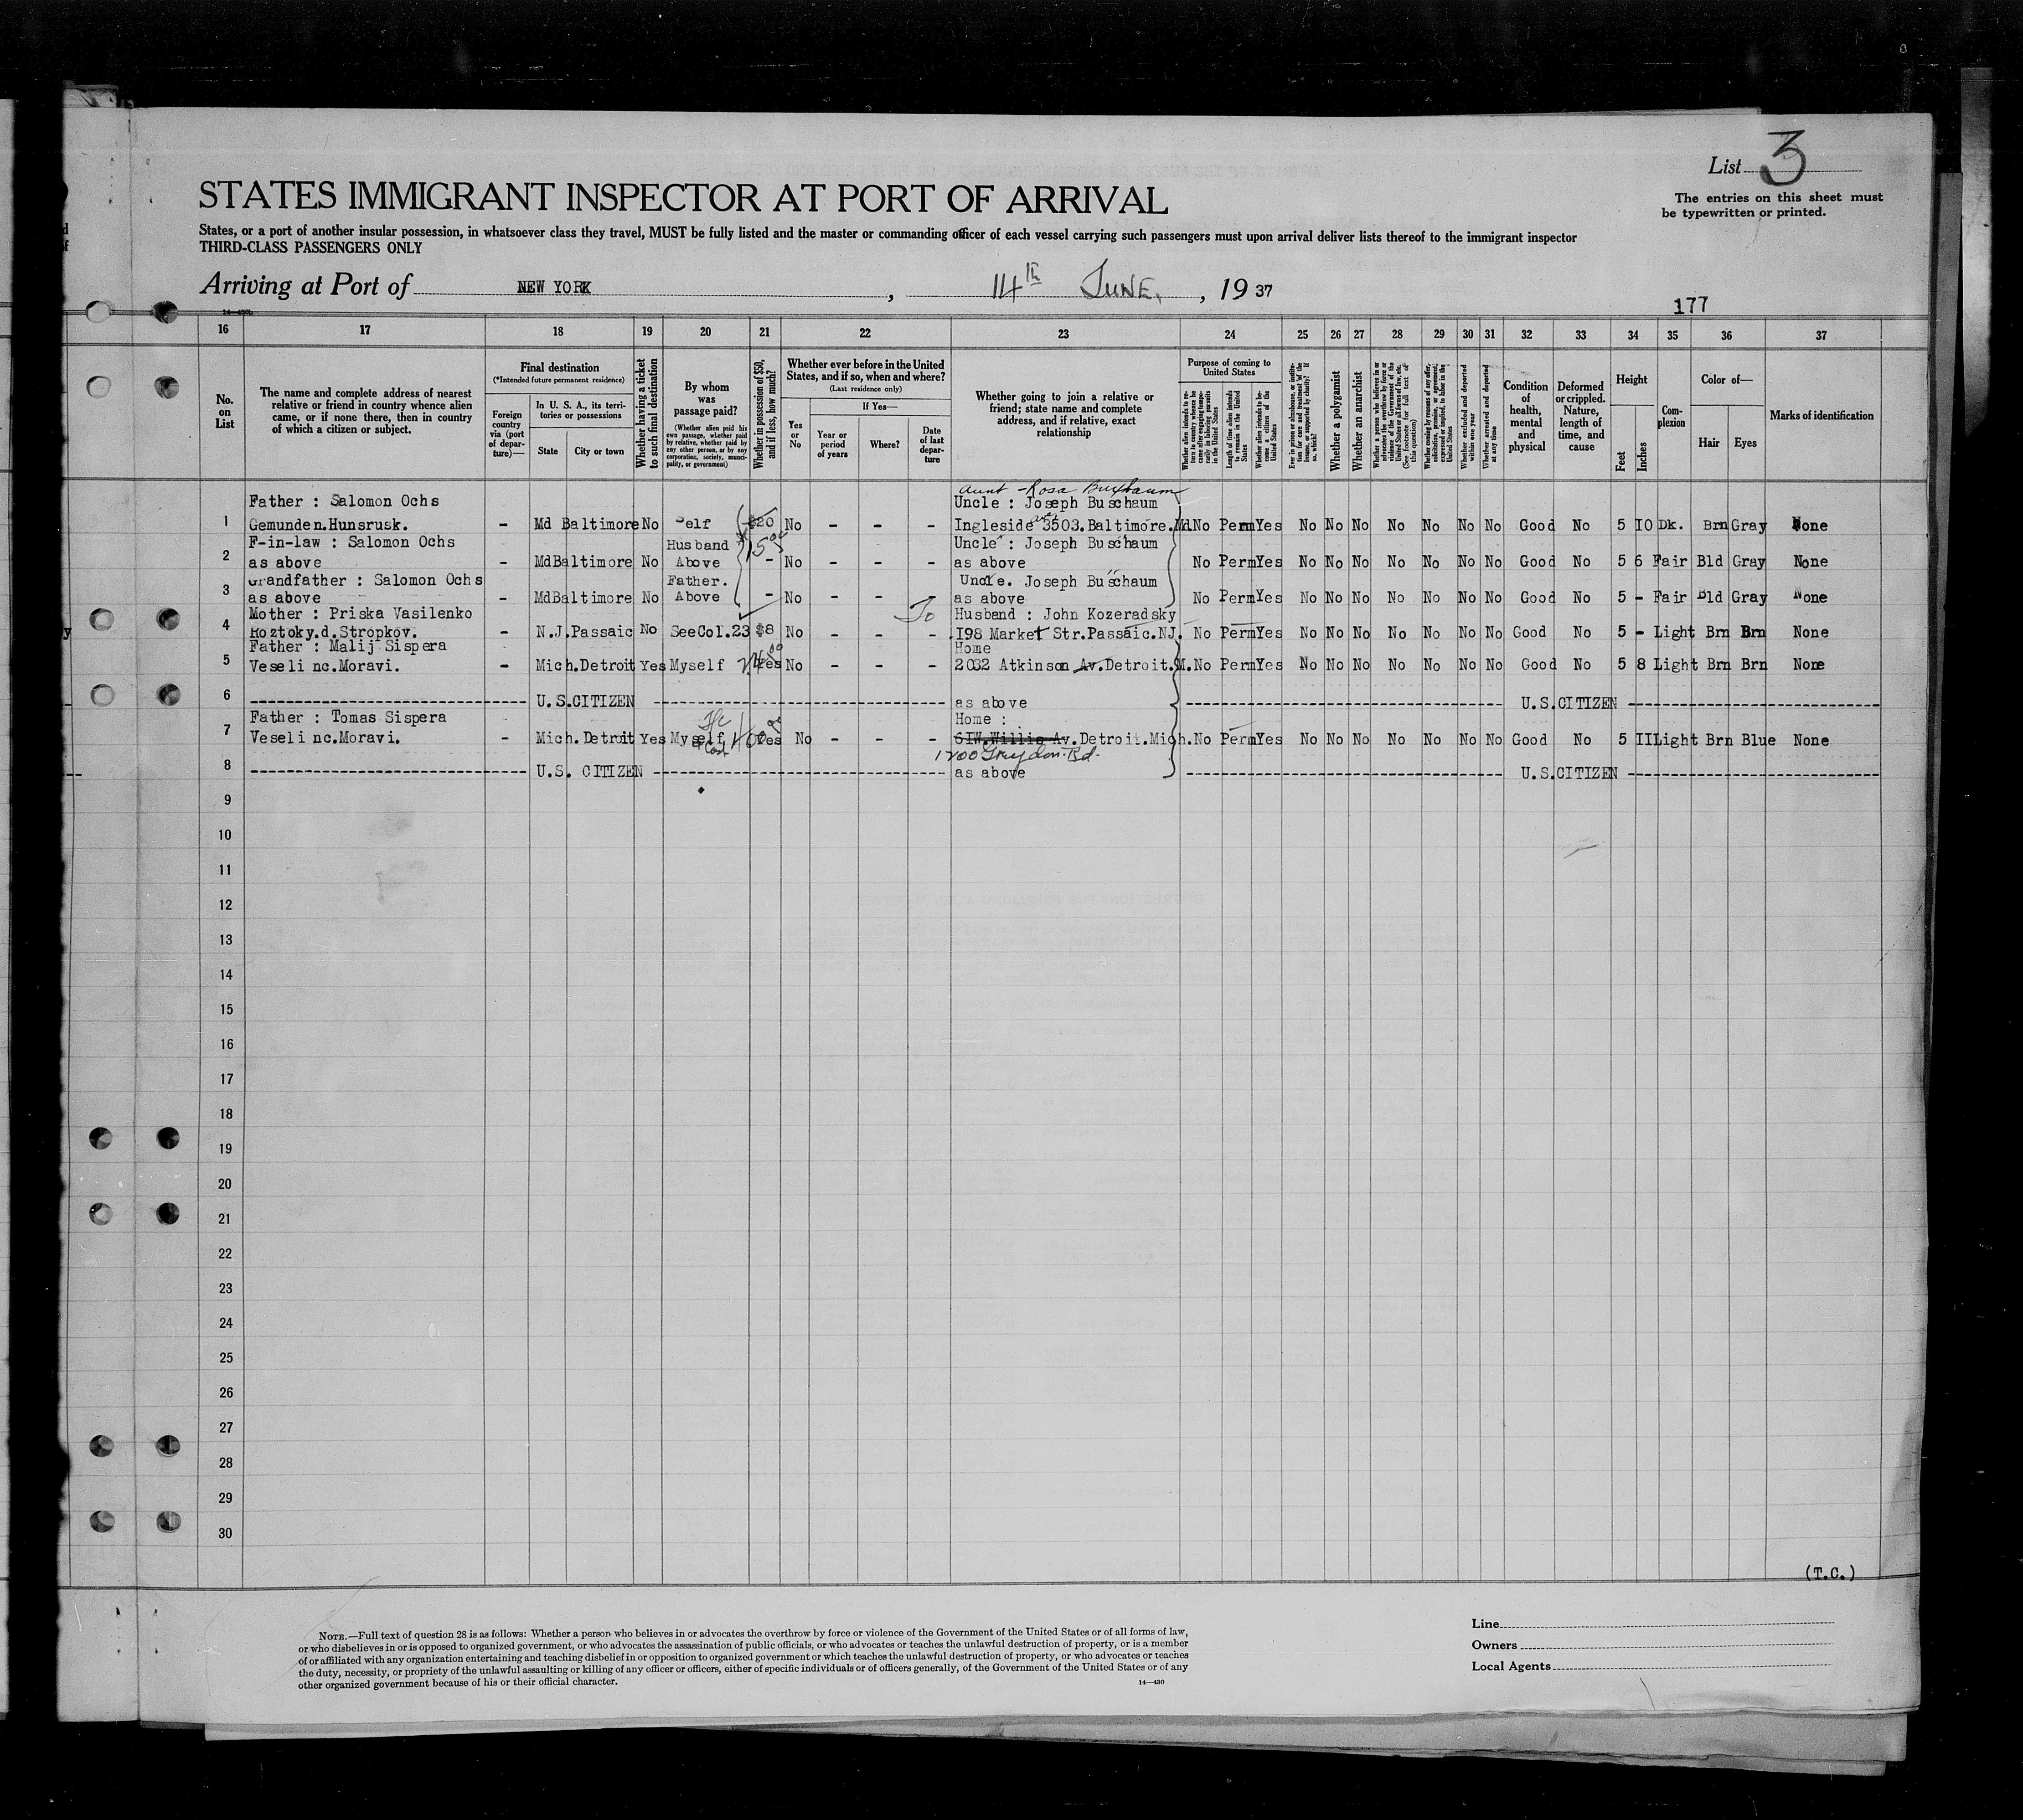 List 3
The entries on this sheet must
be typewritten or printed.
STATES IMMIGRANT INSPECTOR AT PORT OF ARRIVAL
States, or a port of another insular possession, in whatsoever class they travel, MUST be fully listed and the master or commanding officer of each vessel carrying such passengers must upon arrival deliver lists thereof to the immigrant inspector
THIRD-CLASS PASSENGERS ONLY
Arriving at Port of NEW YORK, 14th JUNE, , 19 37
177
16 17 18 19 20 21 22 23 24 25 26 27 28 29 30 31 32 33 34 35 36 37
No. on List
The name and complete address of nearest relative or friend in country whence alien came, or if none there, then in country of which a citizen or subject.
Final destination
(*Intended future permanent residence)
Foreign country via (port of departure)—
In U. S. A., its territories or possessions
State
City or town
Whether having a ticket to such final destination
By whom was passage paid?
(Whether alien paid his own passage, whether paid by relative, whether paid by any other person, or by any corporation, society, municipality, or government)
Whether in possession of $50, and if less, how much?
Whether ever before in the United States, and if so, when and where?
(Last residence only)
Yes or No
If Yes—
Year or period of years
Where?
Date of last departure
Whether going to join a relative or friend; state name and complete address, and if relative, exact relationship
Purpose of coming to United States
Whether alien intends to return to country whence he came after engaging temporarily in laboring pursuits in the United States
Length of time alien intends to remain in the United States
Whether alien intends to become a citizen of the United States
Ever in prison or almshouse, or institution for care and treatment of the insane, or supported by charity? If so, which?
Whether a polygamist
Whether an anarchist
Whether a person who believes in or advocates the overthrow by force or violence of the Government of the United States or all forms of law, etc. (See footnote for full text of this question)
Whether coming by reason of any offer, solicitation, promise, or agreement, expressed or implied, to labor in the United States
Whether excluded and deported within one year
Whether arrested and deported at any time
Condition of health, mental and physical
Deformed or crippled. Nature, length of time, and cause
Height
Feet
Inches
Complexion
Color of—
Hair
Eyes
Marks of identification
Aunt - Rosa Buxbaum
Father : Salomon Ochs Uncle : Joseph Buschaum
1 Gemunden.Hunsrusk. - Md Baltimore No Self $20 No - - - Ingleside 3503.Baltimore.Md No Perm Yes No No No No No No No Good No 5 IO Dk. Brn Gray None
F-in-law : Salomon Ochs Husband 15 Uncle : Joseph Buschaum
2 as above - Md Baltimore No Above - No - - - as above No Perm Yes No No No No No No No Good No 5 6 Fair Bld Gray None
Grandfather : Salomon Ochs Father. Uncle. Joseph Buschaum
3 as above - Md Baltimore No Above - No - - - as above No Perm Yes No No No No No No No Good No 5 - Fair Bld Gray None
Mother : Priska Vasilenko To Husband : John Kozeradsky
4 Roztoky.d.Stropkov. - N.J. Passaic No See Col.23 $8 No - - - I98 Market Str.Passaic.NJ. No Perm Yes No No No No No No No Good No 5 - Light Brn Brn None
Father : Malij Sispera Home
5 Veseli nc.Moravi. - Mich. Detroit Yes Myself Yes No - - - 2032 Atkinson Av.Detroit.M. No Perm Yes No No No No No No No Good No 5 8 Light Brn Brn None
6 U.S.CITIZEN as above U.S.CITIZEN
Father : Tomas Sispera Home :
7 Veseli nc.Moravi. - Mich. Detroit Yes Myself Yes No 6IW.Willis Av.Detroit.Mich. No Perm Yes No No No No No No No Good No 5 II Light Brn Blue None
1700 Graydon Rd.
8 U.S. CITIZEN as above U.S.CITIZEN
9
10
11
12
13
14
15
16
17
18
19
20
21
22
23
24
25
26
27
28
29
30
(T.C.)
NOTE.—Full text of question 28 is as follows: Whether a person who believes in or advocates the overthrow by force or violence of the Government of the United States or of all forms of law,
or who disbelieves in or is opposed to organized government, or who advocates the assassination of public officials, or who advocates or teaches the unlawful destruction of property, or is a member
of or affiliated with any organization entertaining and teaching disbelief in or opposition to organized government or which teaches the unlawful destruction of property, or who advocates or teaches
the duty, necessity, or propriety of the unlawful assaulting or killing of any officer or officers, either of specific individuals or of officers generally, of the Government of the United States or of any
other organized government because of his or their official character.
14—430
Line
Owners
Local Agents